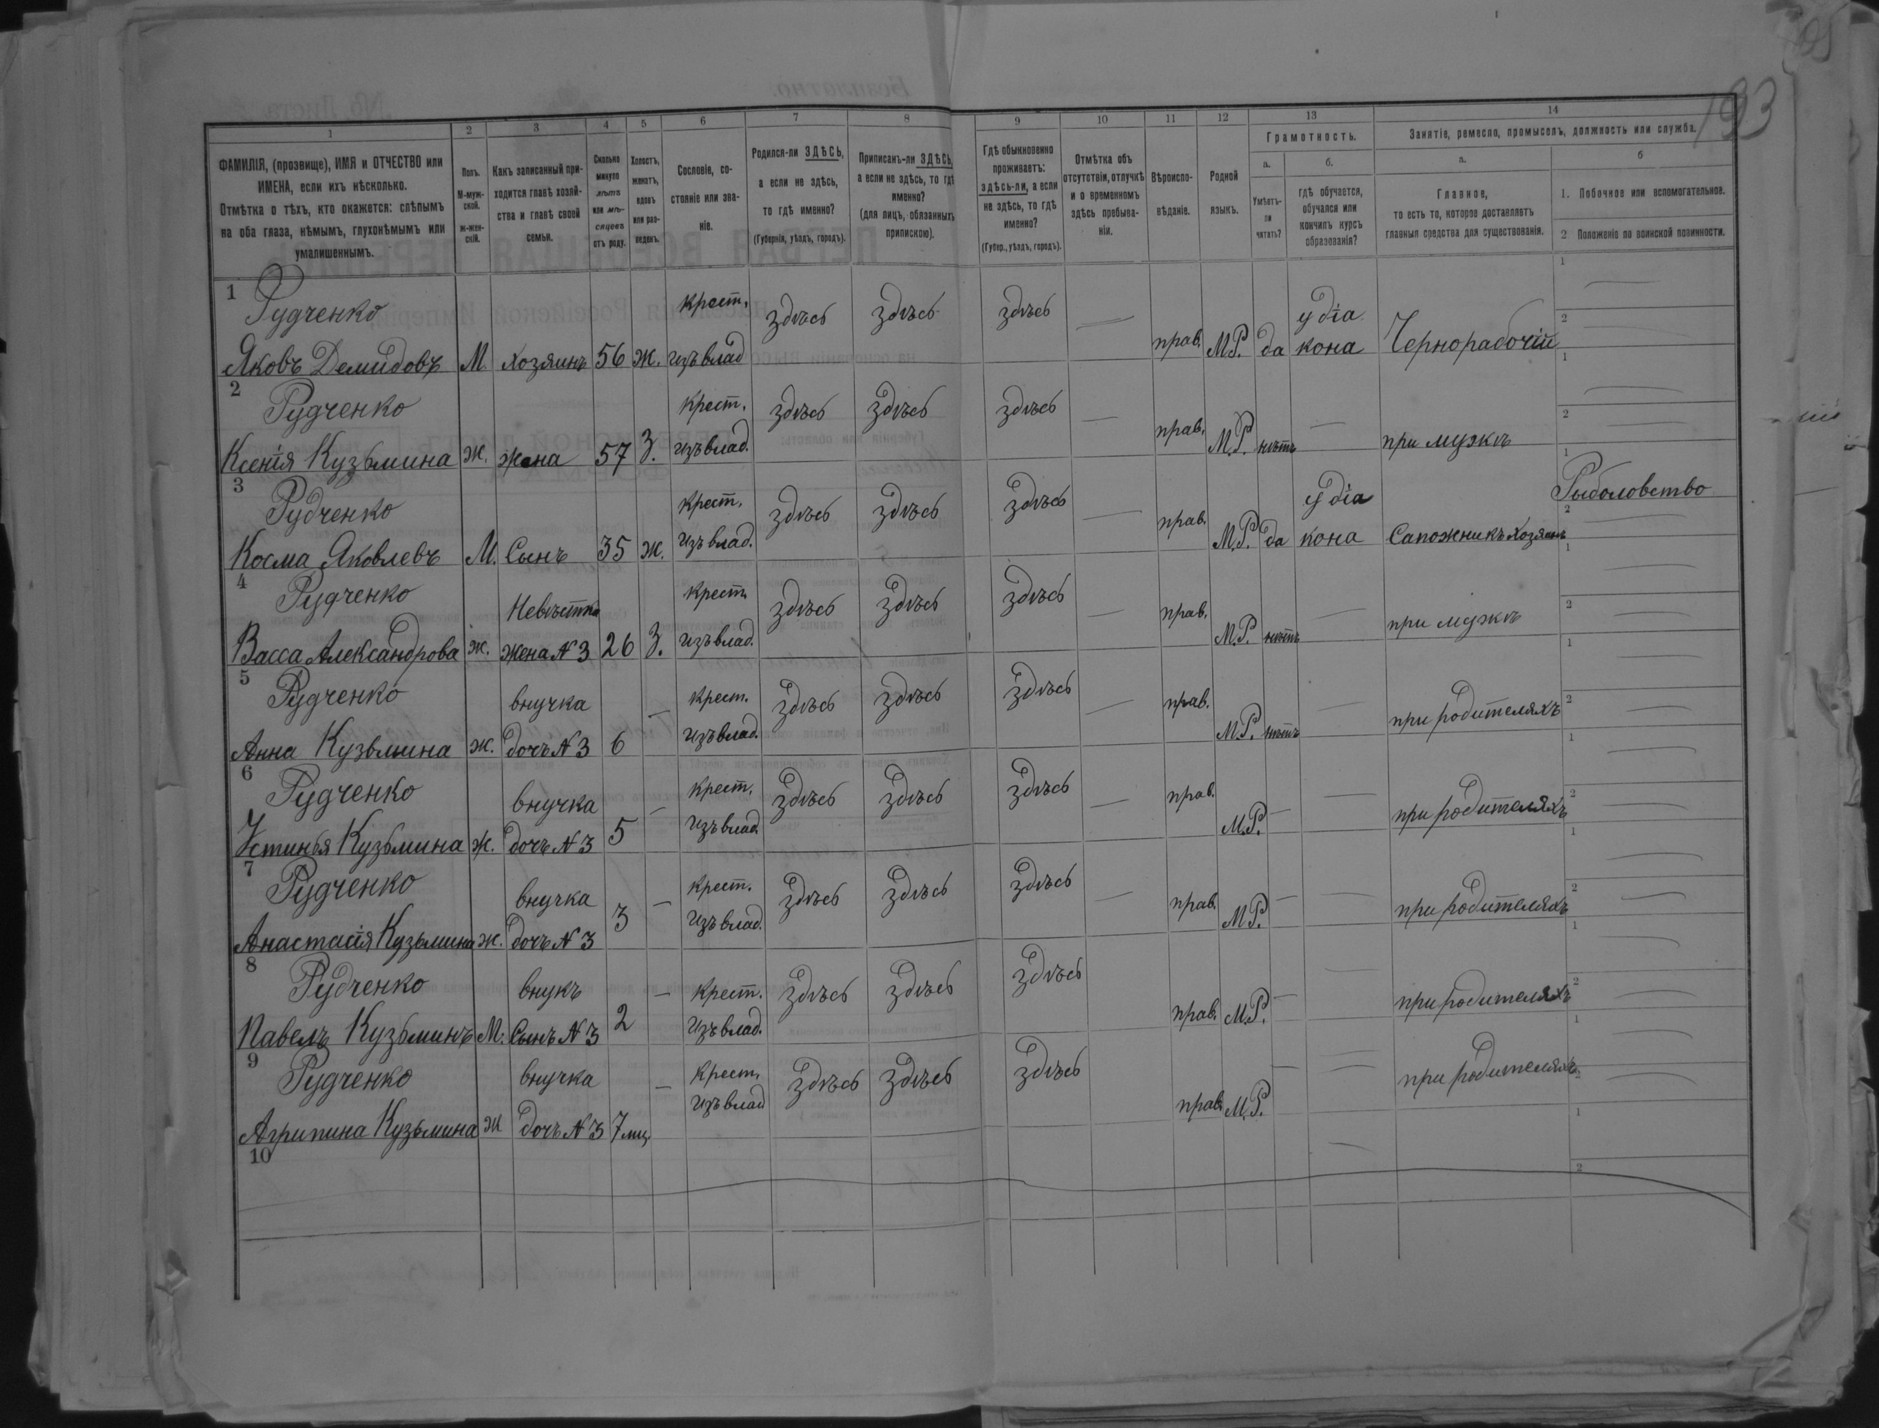 193
1 2 3 4 5 6 7 8 9 10 11 12 13 14
ФАМИЛІЯ, (прозвище), ИМЯ и ОТЧЕСТВО или ИМЕНА, если ихъ нѣсколько.
Отмѣтка о тѣхъ, кто окажется: слѣпымъ на оба глаза, нѣмымъ, глухонѣмымъ или умалишеннымъ.
Полъ. М-мужской. Ж-женскій.
Какъ записанный приходится главѣ хозяйства и главѣ своей семьи.
Сколько минуло лѣтъ или мѣсяцевъ отъ роду.
Холостъ, женатъ, вдовъ или разведенъ.
Сословіе, состояніе или званіе.
Родился-ли ЗДѢСЬ, а если не здѣсь, то гдѣ именно? (Губернія, уѣздъ, городъ).
Приписанъ-ли ЗДѢСЬ, а если не здѣсь, то гдѣ именно? (для лицъ, обязанныхъ припискою).
Гдѣ обыкновенно проживаетъ: здѣсь-ли, а если не здѣсь, то гдѣ именно? (Губер., уѣздъ, городъ).
Отмѣтка объ отсутствіи, отлучкѣ и о временномъ здѣсь пребываніи.
Вѣроисповѣданіе.
Родной языкъ.
Грамотность.
а. Умѣетъ-ли читать?
б. гдѣ обучается, обучался или кончилъ курсъ образованія?
Занятіе, ремесло, промыселъ, должность или служба.
а. Главное, то есть то, которое доставляетъ главныя средства для существованія.
б
1. Побочное или вспомогательное.
2 Положеніе по воинской повинности.
1 Рудченко крест. здѣсь здѣсь здѣсь — у діа
Яковъ Демидовъ М. хозяинъ 56 ж. изъ влад прав. М.Р. да кона Чернорабочій
2 Рудченко крест. здѣсь здѣсь здѣсь —
Ксенія Кузьмина ж. жена 57 З. изъ влад. прав. М.Р. нѣтъ — при мужѣ
3 Рудченко крест. здѣсь здѣсь здѣсь — у діа Рыболовство
Косма Яковлевъ М. Сынъ 35 ж. изъ влад. прав. М.Р. да кона Сапожникъ хозяинъ
4 Рудченко Невѣстка крест. здѣсь здѣсь здѣсь —
Васса Александрова ж. жена N 3 26 З. изъ влад. прав. М.Р. нѣтъ — при мужѣ
5 Рудченко внучка — крест. здѣсь здѣсь здѣсь —
Анна Кузьмина ж. дочь N 3 6 изъ влад. прав. М.Р. нѣтъ — при родителяхъ
6 Рудченко внучка — крест. здѣсь здѣсь здѣсь —
Устинья Кузьмина ж. дочь N 3 5 изъ влад. прав. М.Р. — — при родителяхъ
7 Рудченко внучка — крест. здѣсь здѣсь здѣсь —
Анастасія Кузьмина ж. дочь N 3 3 изъ влад. прав. М.Р. — — при родителяхъ
8 Рудченко внукъ — крест. здѣсь здѣсь здѣсь
Павелъ Кузьминъ М. Сынъ N 3 2 изъ влад. прав. М.Р. — — при родителяхъ
9 Рудченко внучка — крест. здѣсь здѣсь здѣсь
Агрипина Кузьмина ж дочь N 3 7 мц. изъ влад прав. М.Р. — — при родителяхъ
10